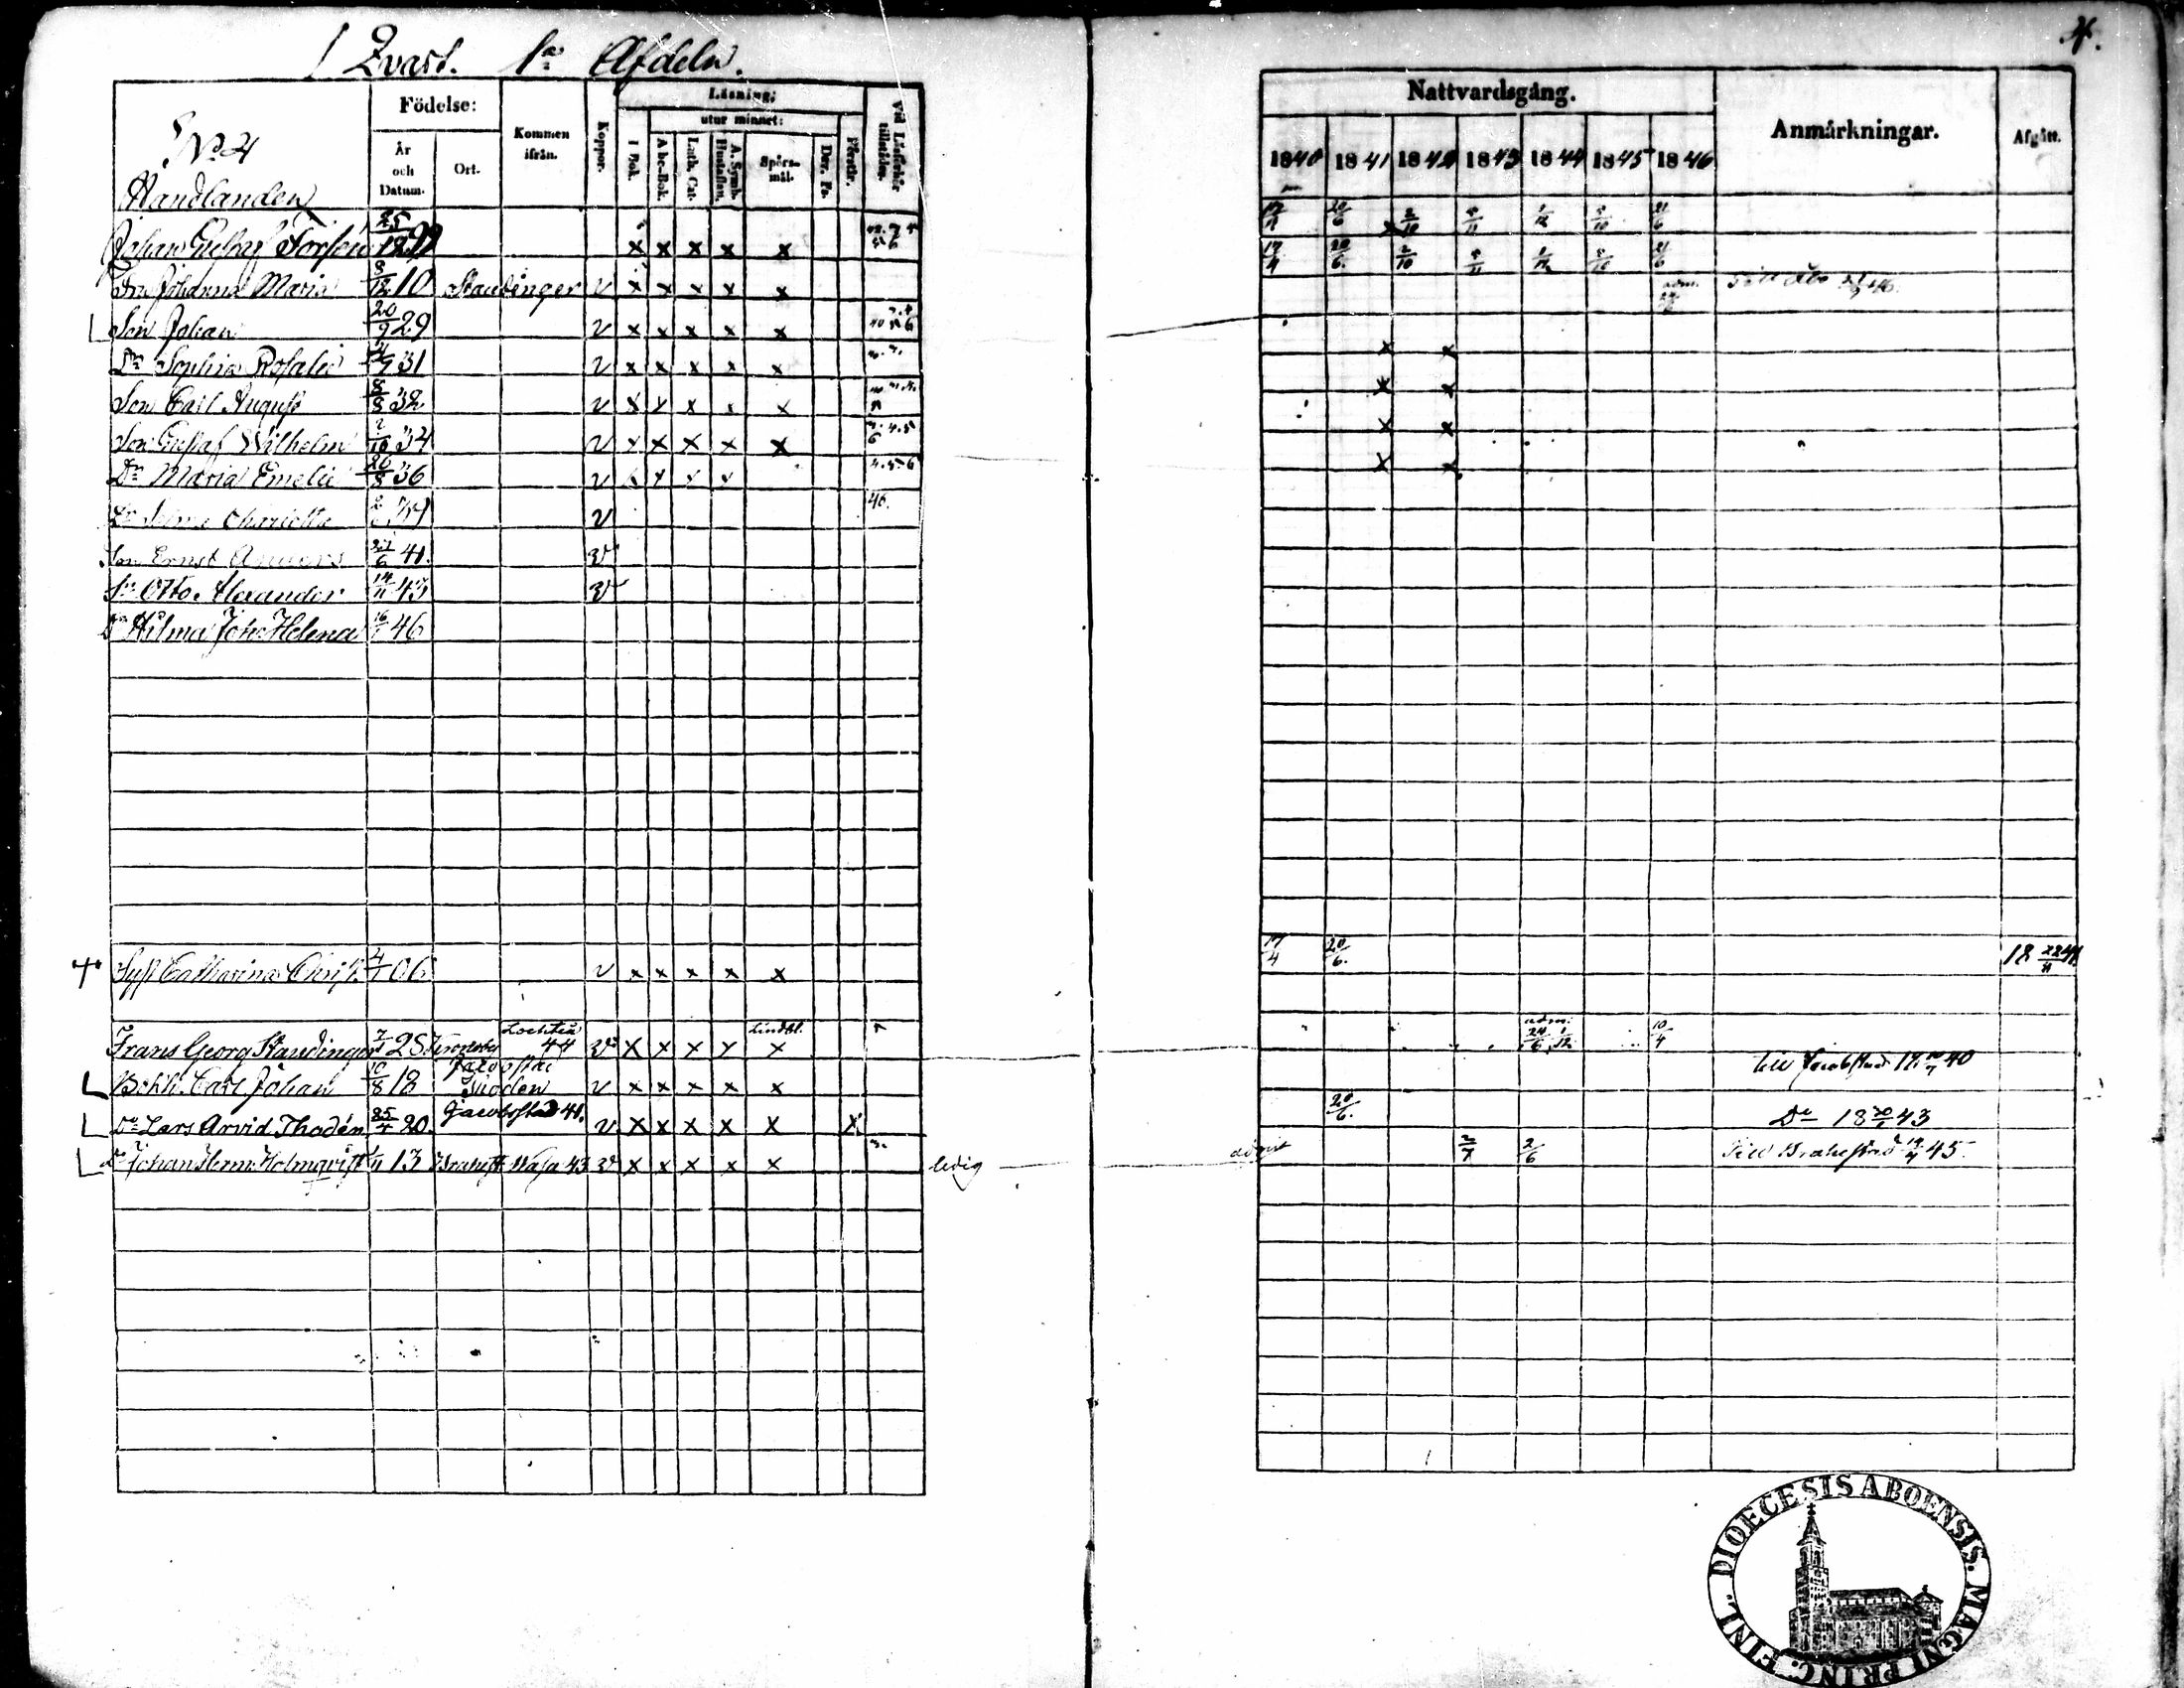 1 Qvart. 1a Afdeln.
4.
No 4
Handlanden
Födelse:
År och Datum.
Ort.
Kommen ifrån.
Koppor.
Läsning;
I Bok.
utur minnet:
Abc-Bok.
Luth. Cat.
A. Symb. Hustaflan.
Spörs-mål.
Dav. Ps.
Förstår.
Vid Läsförhör tillstädes.
Nattvardsgång.
1840 1841 1842 1843 1844 1845 1846
Anmärkningar.
Afgått.
Johan Gustaf Forsén 25/12 99 x x x x x 17/4 20/6 2/10 5/11 1/12 5/10 21/6
Fru Johanna Maria 8/12 10 Staudinger v x x x x x 17/4 20/6. 2/10 5/11 1/12 5/10 21/6
Son Johan 20/9 29 v x x x x x adm. Till Åbo
Dr Sophia Rosalie 31 v x x x x x
Son Carl August 8/8 32 v x x x x x
Son Gustaf Wilhelm 2/10 34 v x x x x x
Dr Maria Emelie 26/8 36 v x x x x 4.5.6
Dr Selma Charlotta v 46.
Son Ernst 27/6 41. v
Sn Otto Alexander 14/11 43 v
Dr Hilma Joh. Helena 16/ 46
Syst Catharina Christ. 4/1 06 v x x x x x 17/4 20/6. 18 22/11 41.
Frans Georg Staudinger 7/11 28 Kronoby Lochteå 44 v x x x x Lindbl. x adm. 24/6 1/12 10/4
Bokh. Carl Johan Thodén 10/8 18 Jacobstad v x x x x x till Jacobstad 18 40
Do Lars Arvid Thodén 25/4 20. Jacobstad 41. v x x x x x x. 20/6. Do 18 43
Do Johan Herm. Holmqvist 1/11 13 Brahest. Wasa 43 v x x x x x ledig admit 2/7 2/6 Till Brahestad 19/4 45.
DIOECESIS ABOENSIS. MAGNI PRINC. FINL.